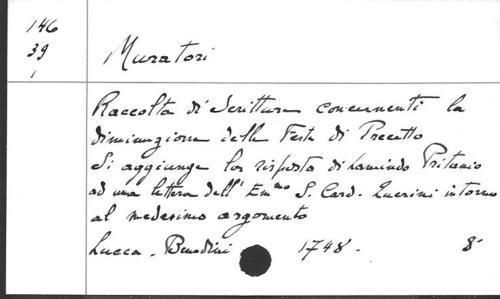 146
39
1
Muratori
Raccolta di Scritture concernenti la
diminuzione delle Feste di Precetto
Si aggiunge la risposta di Lamindo Pritanio
ad una lettera dell' Em.mo S. Card. Querini intorno
al medesimo argomento
Lucca. Benedini 1748. 8°